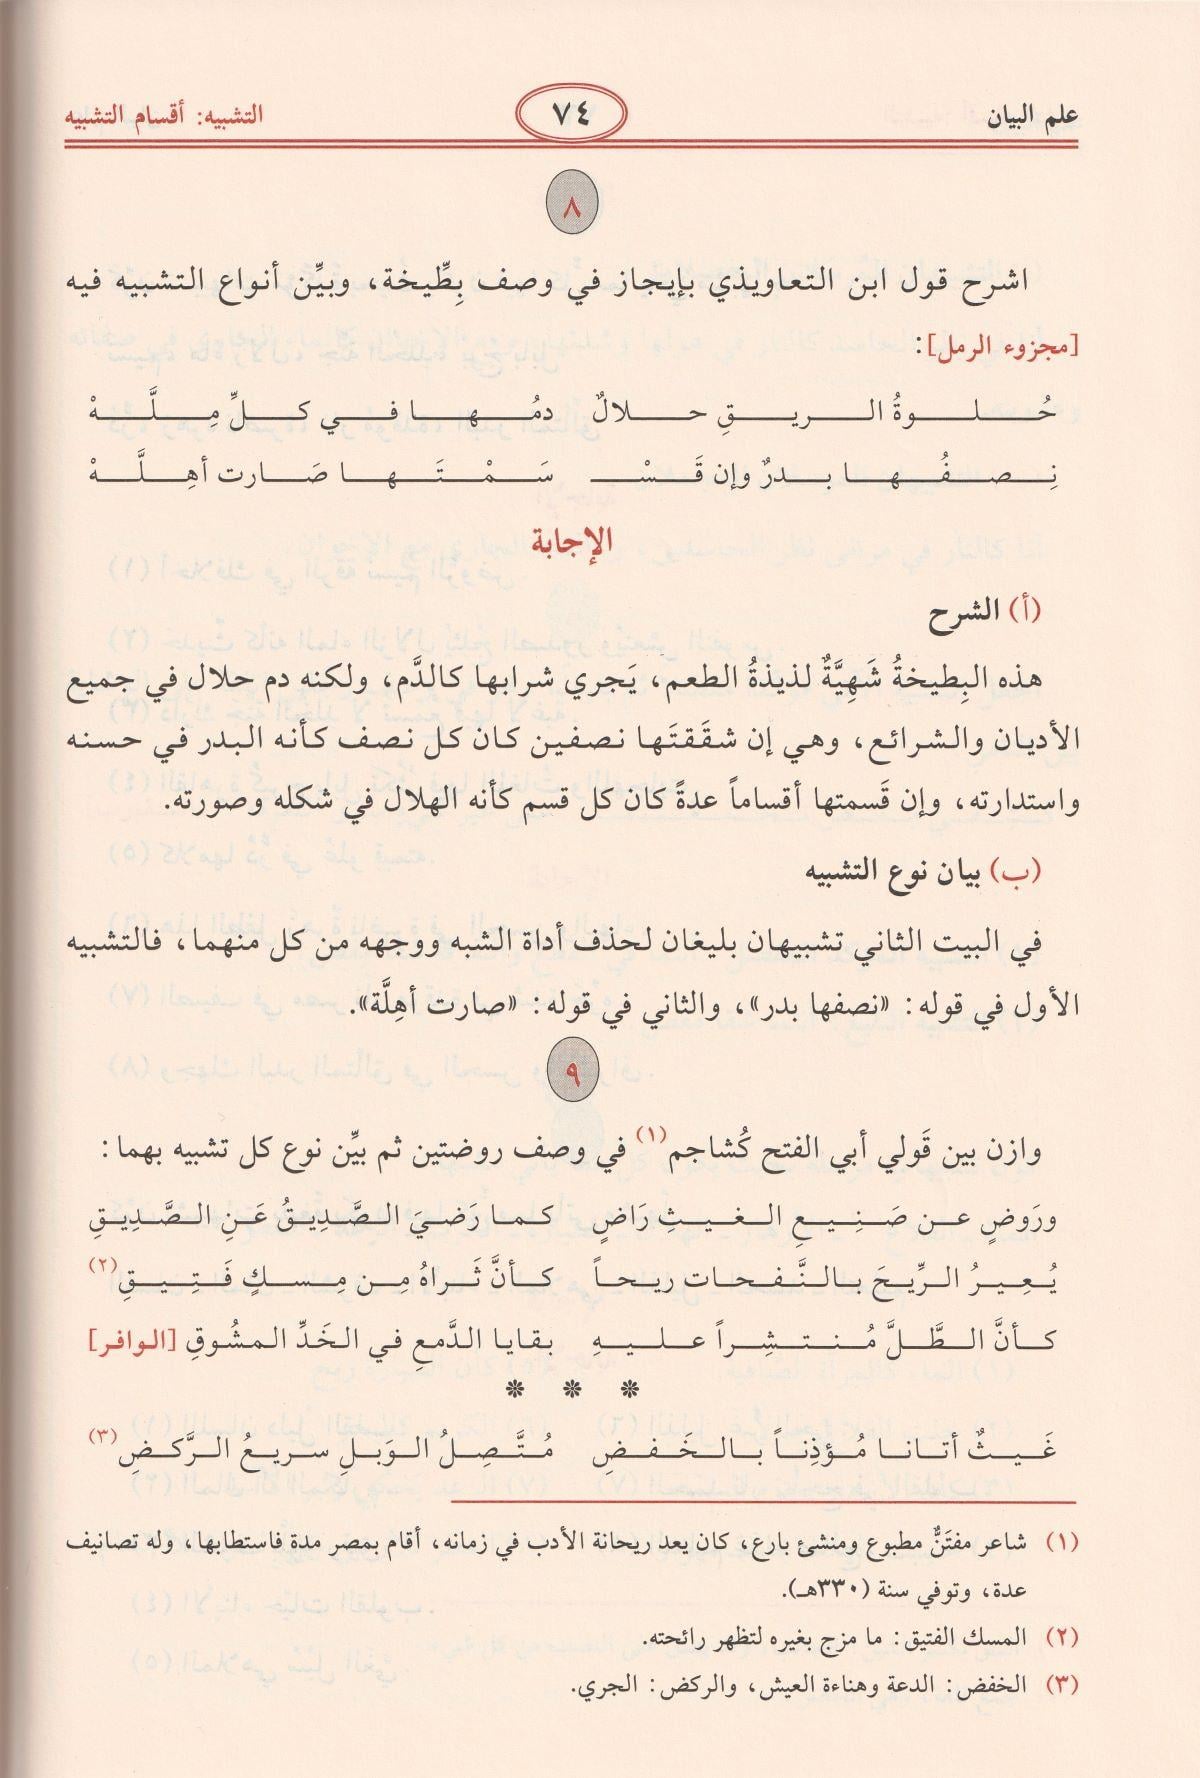 علم البيان ٧٤ التشبيه: أقسام التشبيه
٨
اشرح قول ابن التعاويذي بإيجاز في وصف بِطِّيخة، وبيِّن أنواع التشبيه فيه
[مجزوء الرمل]:
حُلوةُ الريقِ حلالٌ دمُها في كلِّ مِلَّهْ
نِصفُها بدرٌ وإن قَسْـ ـسَمْتَها صَارت أهِلَّهْ
الإجابة
(أ) الشرح
هذه البِطيخةُ شَهِيَّةٌ لذيذةُ الطعم، يَجري شرابها كالدَّم، ولكنه دم حلال في جميع
الأديان والشرائع، وهي إن شقَقتَها نصفين كان كل نصف كأنه البدر في حسنه
واستدارته، وإن قَسمتها أقساماً عدةً كان كل قسم كأنه الهلال في شكله وصورته.
(ب) بيان نوع التشبيه
في البيت الثاني تشبيهان بليغان لحذف أداة الشبه ووجهه من كل منهما، فالتشبيه
الأول في قوله: «نصفها بدر»، والثاني في قوله: «صارت أهِلَّة».
٩
وازن بين قَولي أبي الفتح كُشاجم(١) في وصف روضتين ثم بيِّن نوع كل تشبيه بهما:
ورَوضٍ عن صَنِيعِ الغيثِ رَاضٍ كما رَضيَ الصَّدِيقُ عَنِ الصَّدِيقِ
يُعِيرُ الرِّيحَ بالنَّفحات ريحاً كأنَّ ثَراهُ مِن مِسكٍ فَتِيقِ(٢)
كأنَّ الطَّلَّ مُنتشِراً عليهِ بقايا الدَّمعِ في الخَدِّ المشُوقِ [الوافر]
* * *
غَيثٌ أتانا مُؤذِناً بالخَفضِ مُتَّصِلُ الوَبلِ سريعُ الرَّكضِ(٣)
(١) شاعر مفتَنٌّ مطبوع ومنشئ بارع، كان يعد ريحانة الأدب في زمانه، أقام بمصر مدة فاستطابها، وله تصانيف
عدة، وتوفي سنة (٣٣٠هـ).
(٢) المسك الفتيق: ما مزج بغيره لتظهر رائحته.
(٣) الخفض: الدعة وهناءة العيش، والركض: الجري.